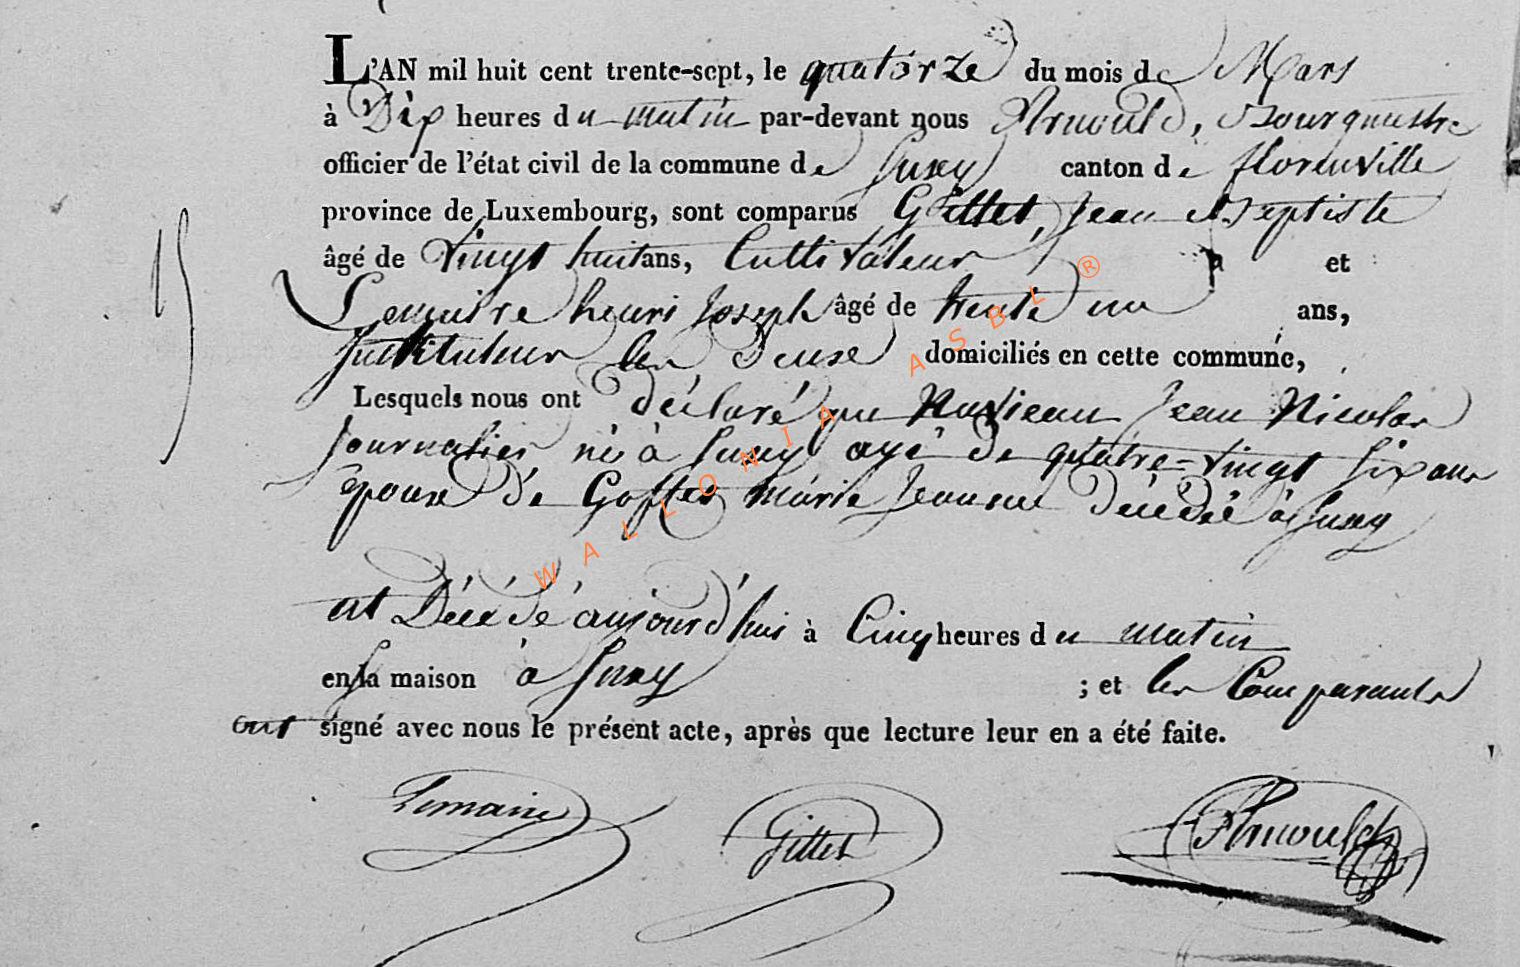 L'AN mil huit cent trente-sept, le quatorze du mois de Mars
à Dix heures du matin par-devant nous Arnould, Bourgmestre
officier de l'état civil de la commune de Suxy canton de florenville
province de Luxembourg, sont comparus Gillet, Jean Baptiste
âgé de Vingt huit ans, Cultivateur et
Lemaire henri Joseph âgé de trente un ans,
Instituteur les Deux domiciliés en cette commune,
Lesquels nous ont déclaré que Naviaux Jean Nicolas
Journalier né à Suxy agé de quatre-vingt six ans
époux de Goffes Marie Jeanne décédée à Suxy
est Décédé aujourd'hui à Cinq heures du matin
en sa maison à Suxy ; et les Comparants
ont signé avec nous le présent acte, après que lecture leur en a été faite.
Lemaire Gillet Arnould
WALLONIA ASBL ®